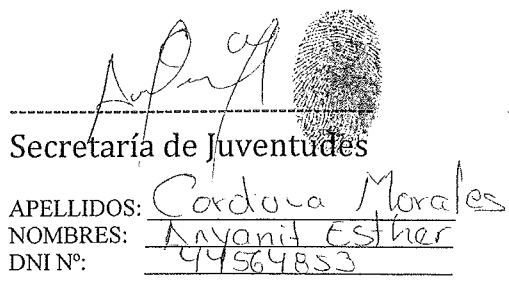 Secretaría de Juventudes
APELLIDOS: Cordova Morales
NOMBRES: Anyanit Esther
DNI Nº: 44564853